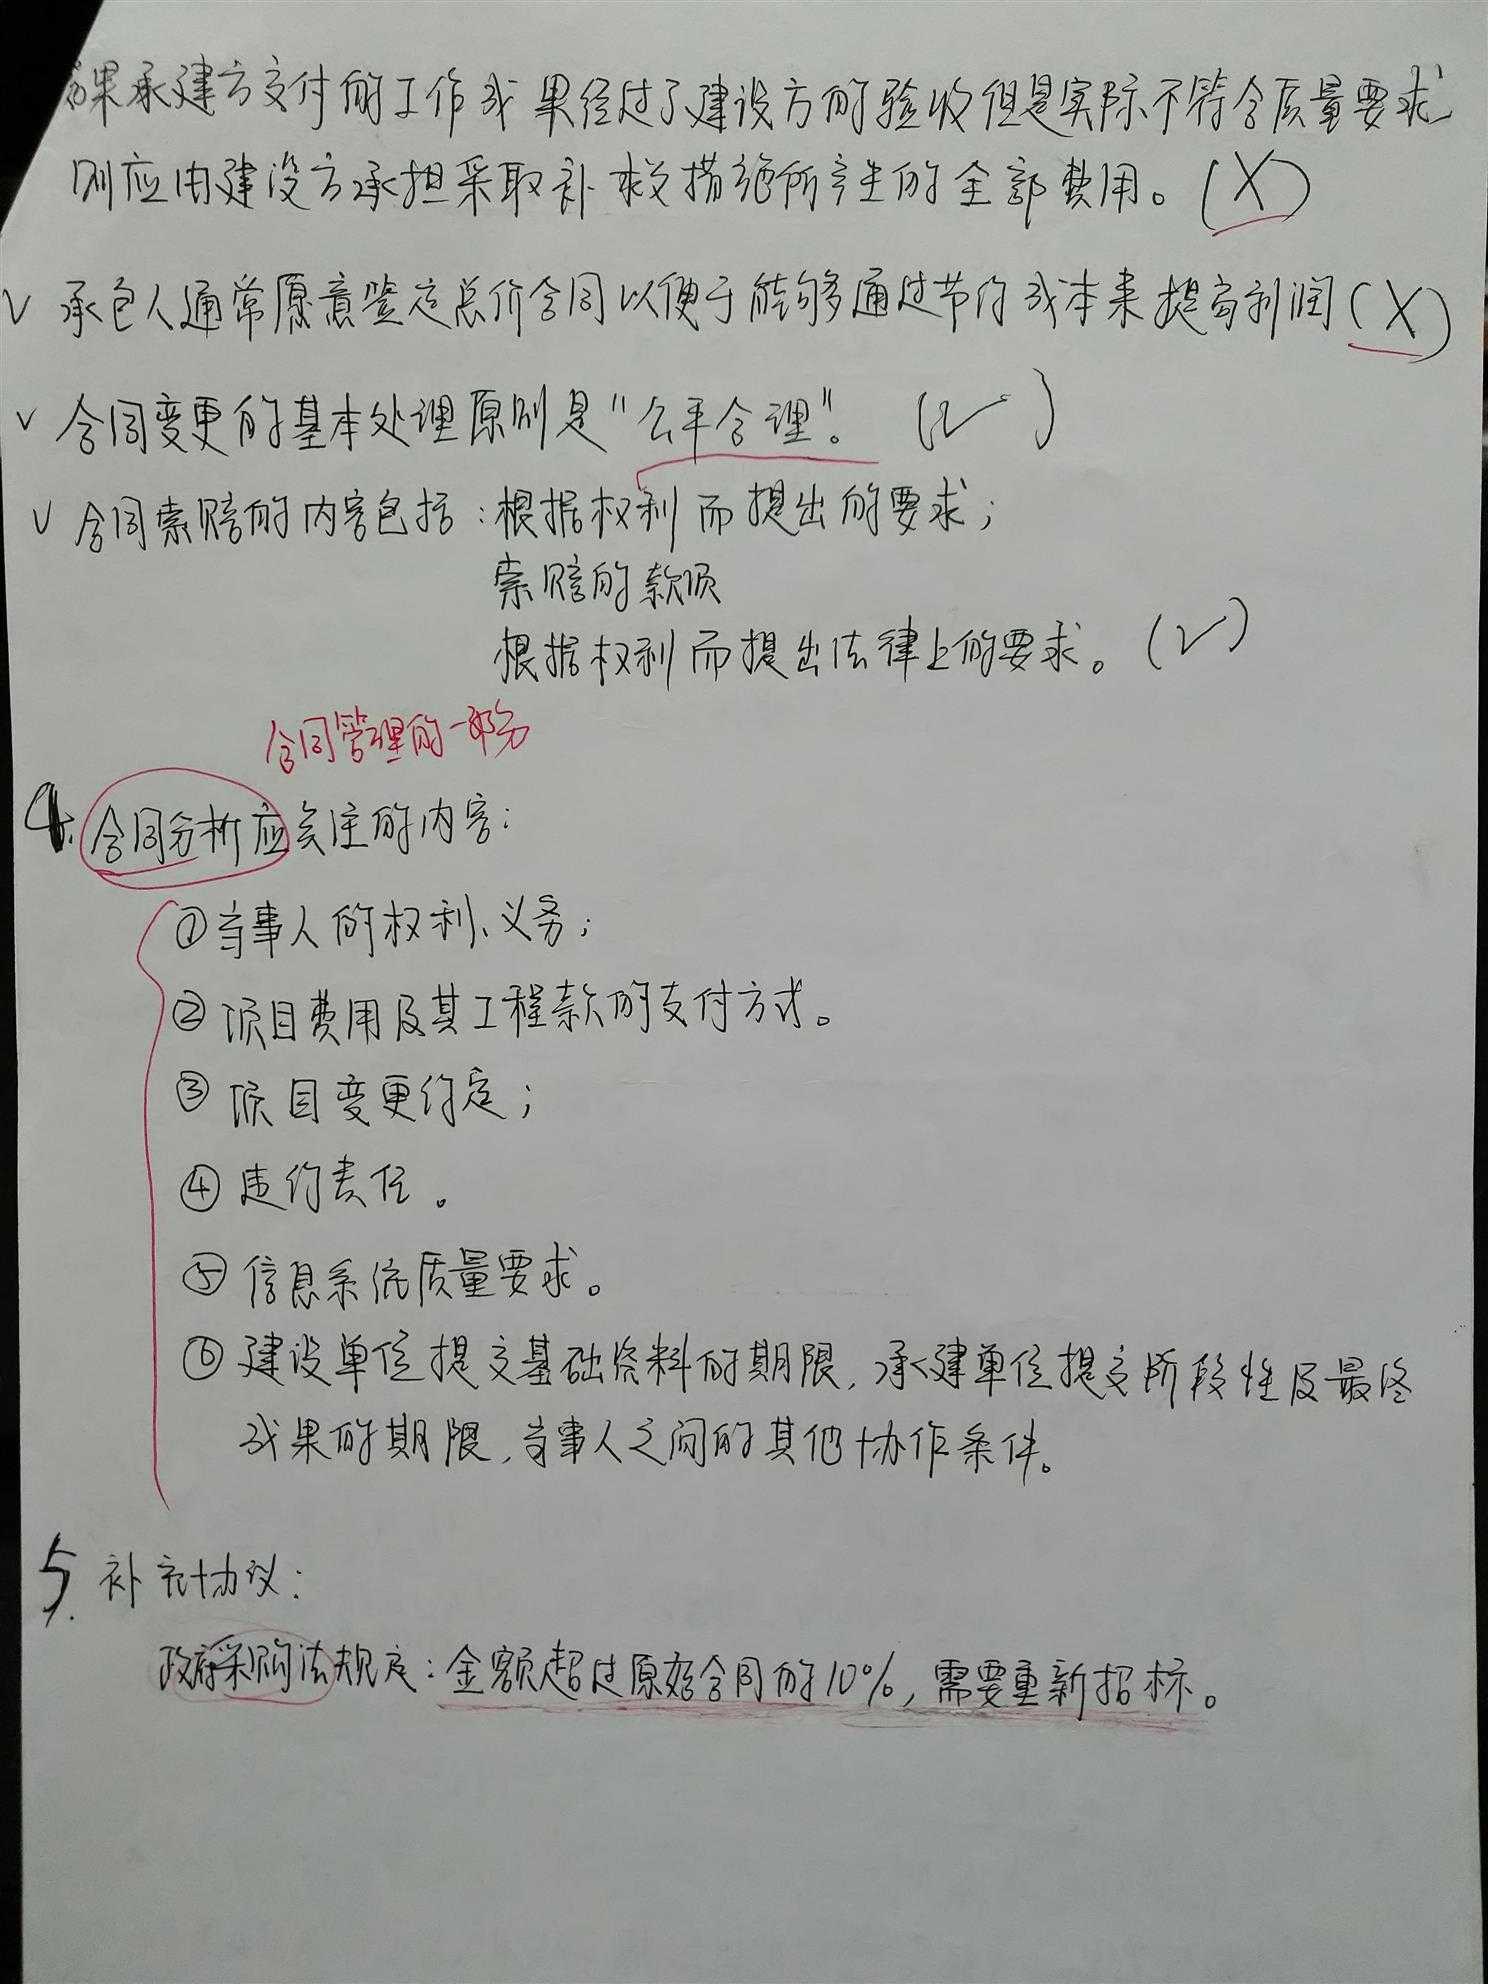 如果承建方交付的工作成果经过了建设方的验收但是实际不符合质量要求
则应由建设方承担采取补救措施所产生的全部费用。(X)
∨ 承包人通常愿意签定总价合同以便于能够通过节约成本来提高利润(X)
∨ 合同变更的基本处理原则是"公平合理"。(✓)
∨ 合同索赔的内容包括:根据权利而提出的要求;
索赔的款项
根据权利而提出法律上的要求。(✓)
合同管理的一部分
4. 合同分析应关注的内容:
①当事人的权利、义务;
②项目费用及其工程款的支付方式。
③项目变更约定;
④违约责任。
⑤信息系统质量要求。
⑥建设单位提交基础资料的期限,承建单位提交阶段性及最终
成果的期限,当事人之间的其他协作条件。
5. 补充协议:
政府采购法规定:金额超过原始合同的10%,需要重新招标。